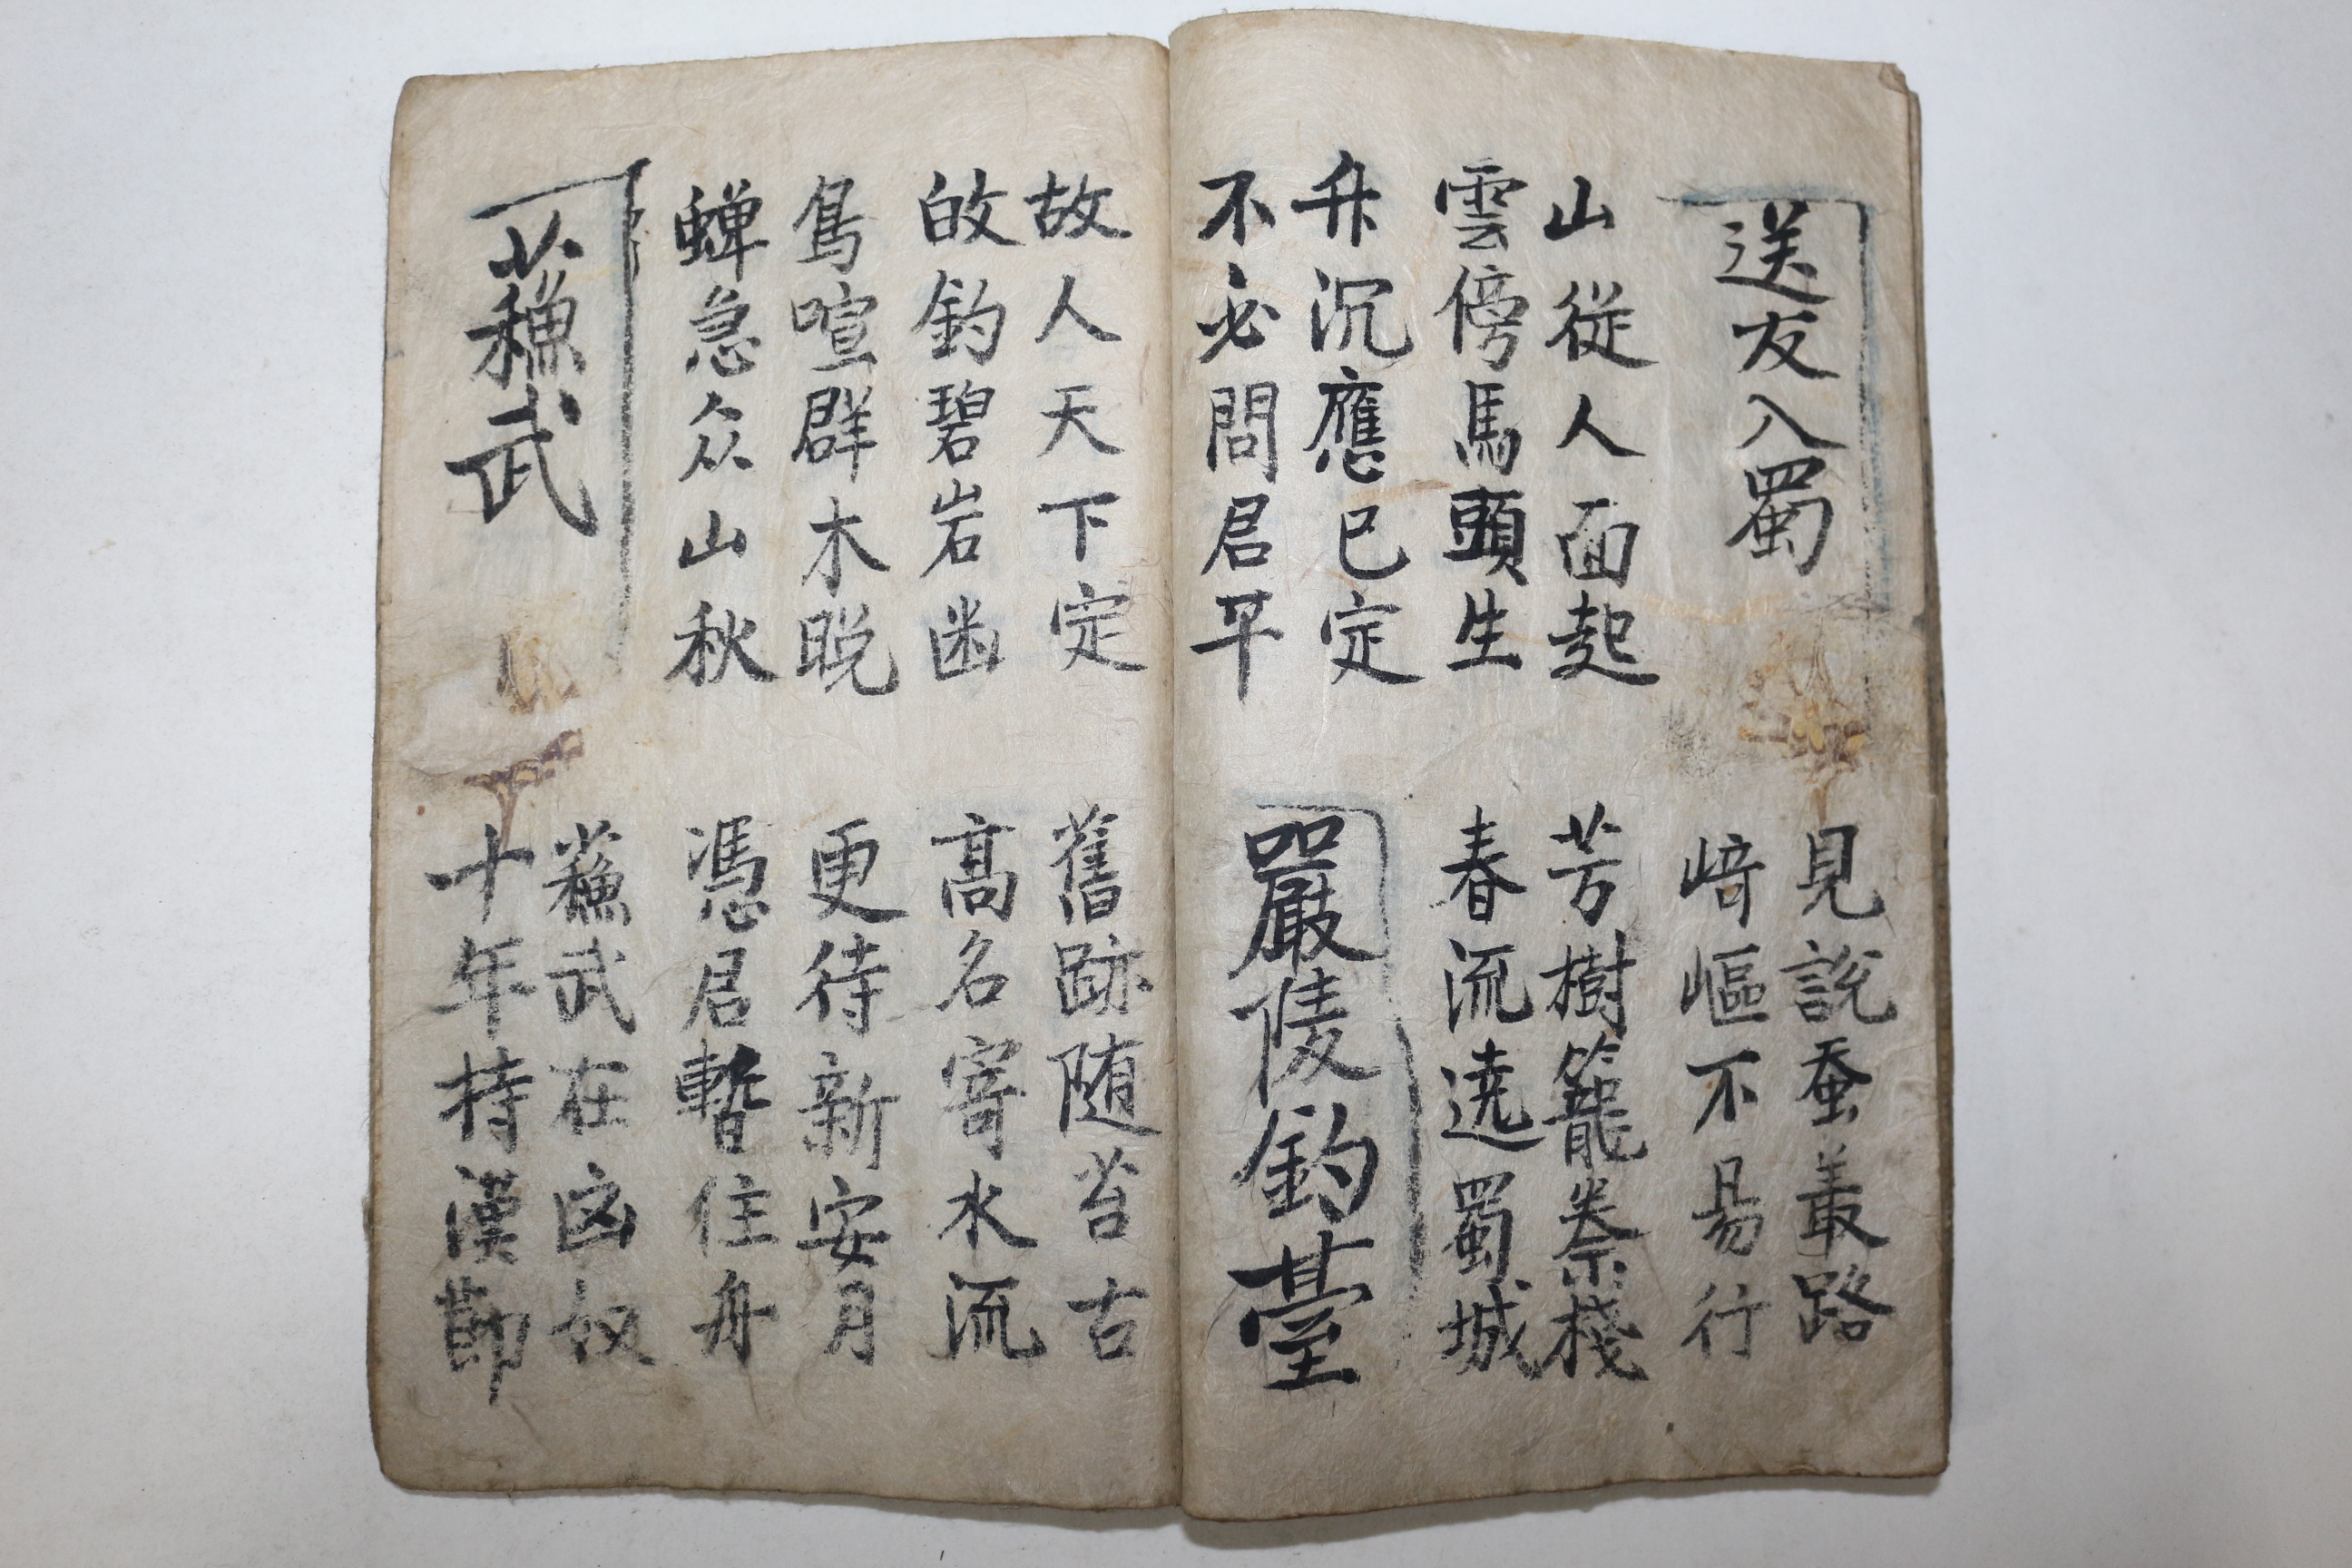 送友入蜀
見說蚕叢路
崎嶇不易行
山從人面起
雲傍馬頭生
芳樹籠秦棧
春流遶蜀城
升沉應已定
不必問君平
嚴陵釣臺
故人天下定
敀釣碧岩幽
舊跡随苔古
高名寄水流
鳥喧群木晚
蟬急众山秋
更待新安月
憑君暫住舟
蘓武
蘓武在凶奴
十年持漢節